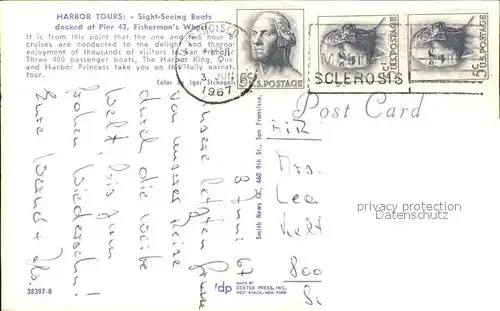 HARBOR TOURS: - Sight-Seeing Boats
docked at Pier 43, Fisherman's Wharf.
It is from this point that the one and two hour
cruises are conducted to the delight and thorough
enjoyment of thousands of visitors to San Francisco.
Three 400 passenger boats, The Harbor King, Queen
and Harbor Princess take you on this fully narrated
tour.
Color by Igor
38397-B
3 JUN
1967
5¢
U.S. POSTAGE
5¢
U.S. POSTAGE
5¢
U.S. POSTAGE
SCLEROSIS
Post Card
Smith News Co., 460 9th St., San Francisco,
dp
MADE BY
DEXTER PRESS, INC.
WEST NYACK, NEW YORK
8 Juni 67
Unsere letzten Grüsse
von unserer Reise
durch die weite
Welt! Bis zum
frohen Wiedersehn!
Eure
AIR
Mrs.
Lea
800
privacy protection
Datenschutz